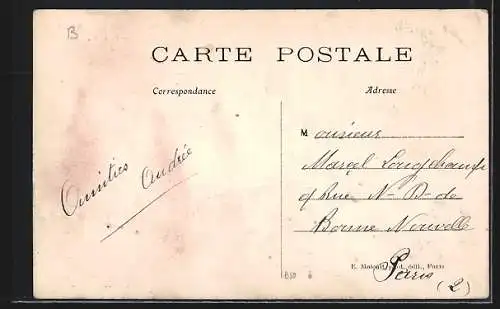 B
CARTE POSTALE
Correspondance
Adresse
Amitiés André
Monsieur
Marcel Longchamp
9 Rue N-D-de
Bonne Nouvelle
Paris (2)
édit., Paris
B50 6